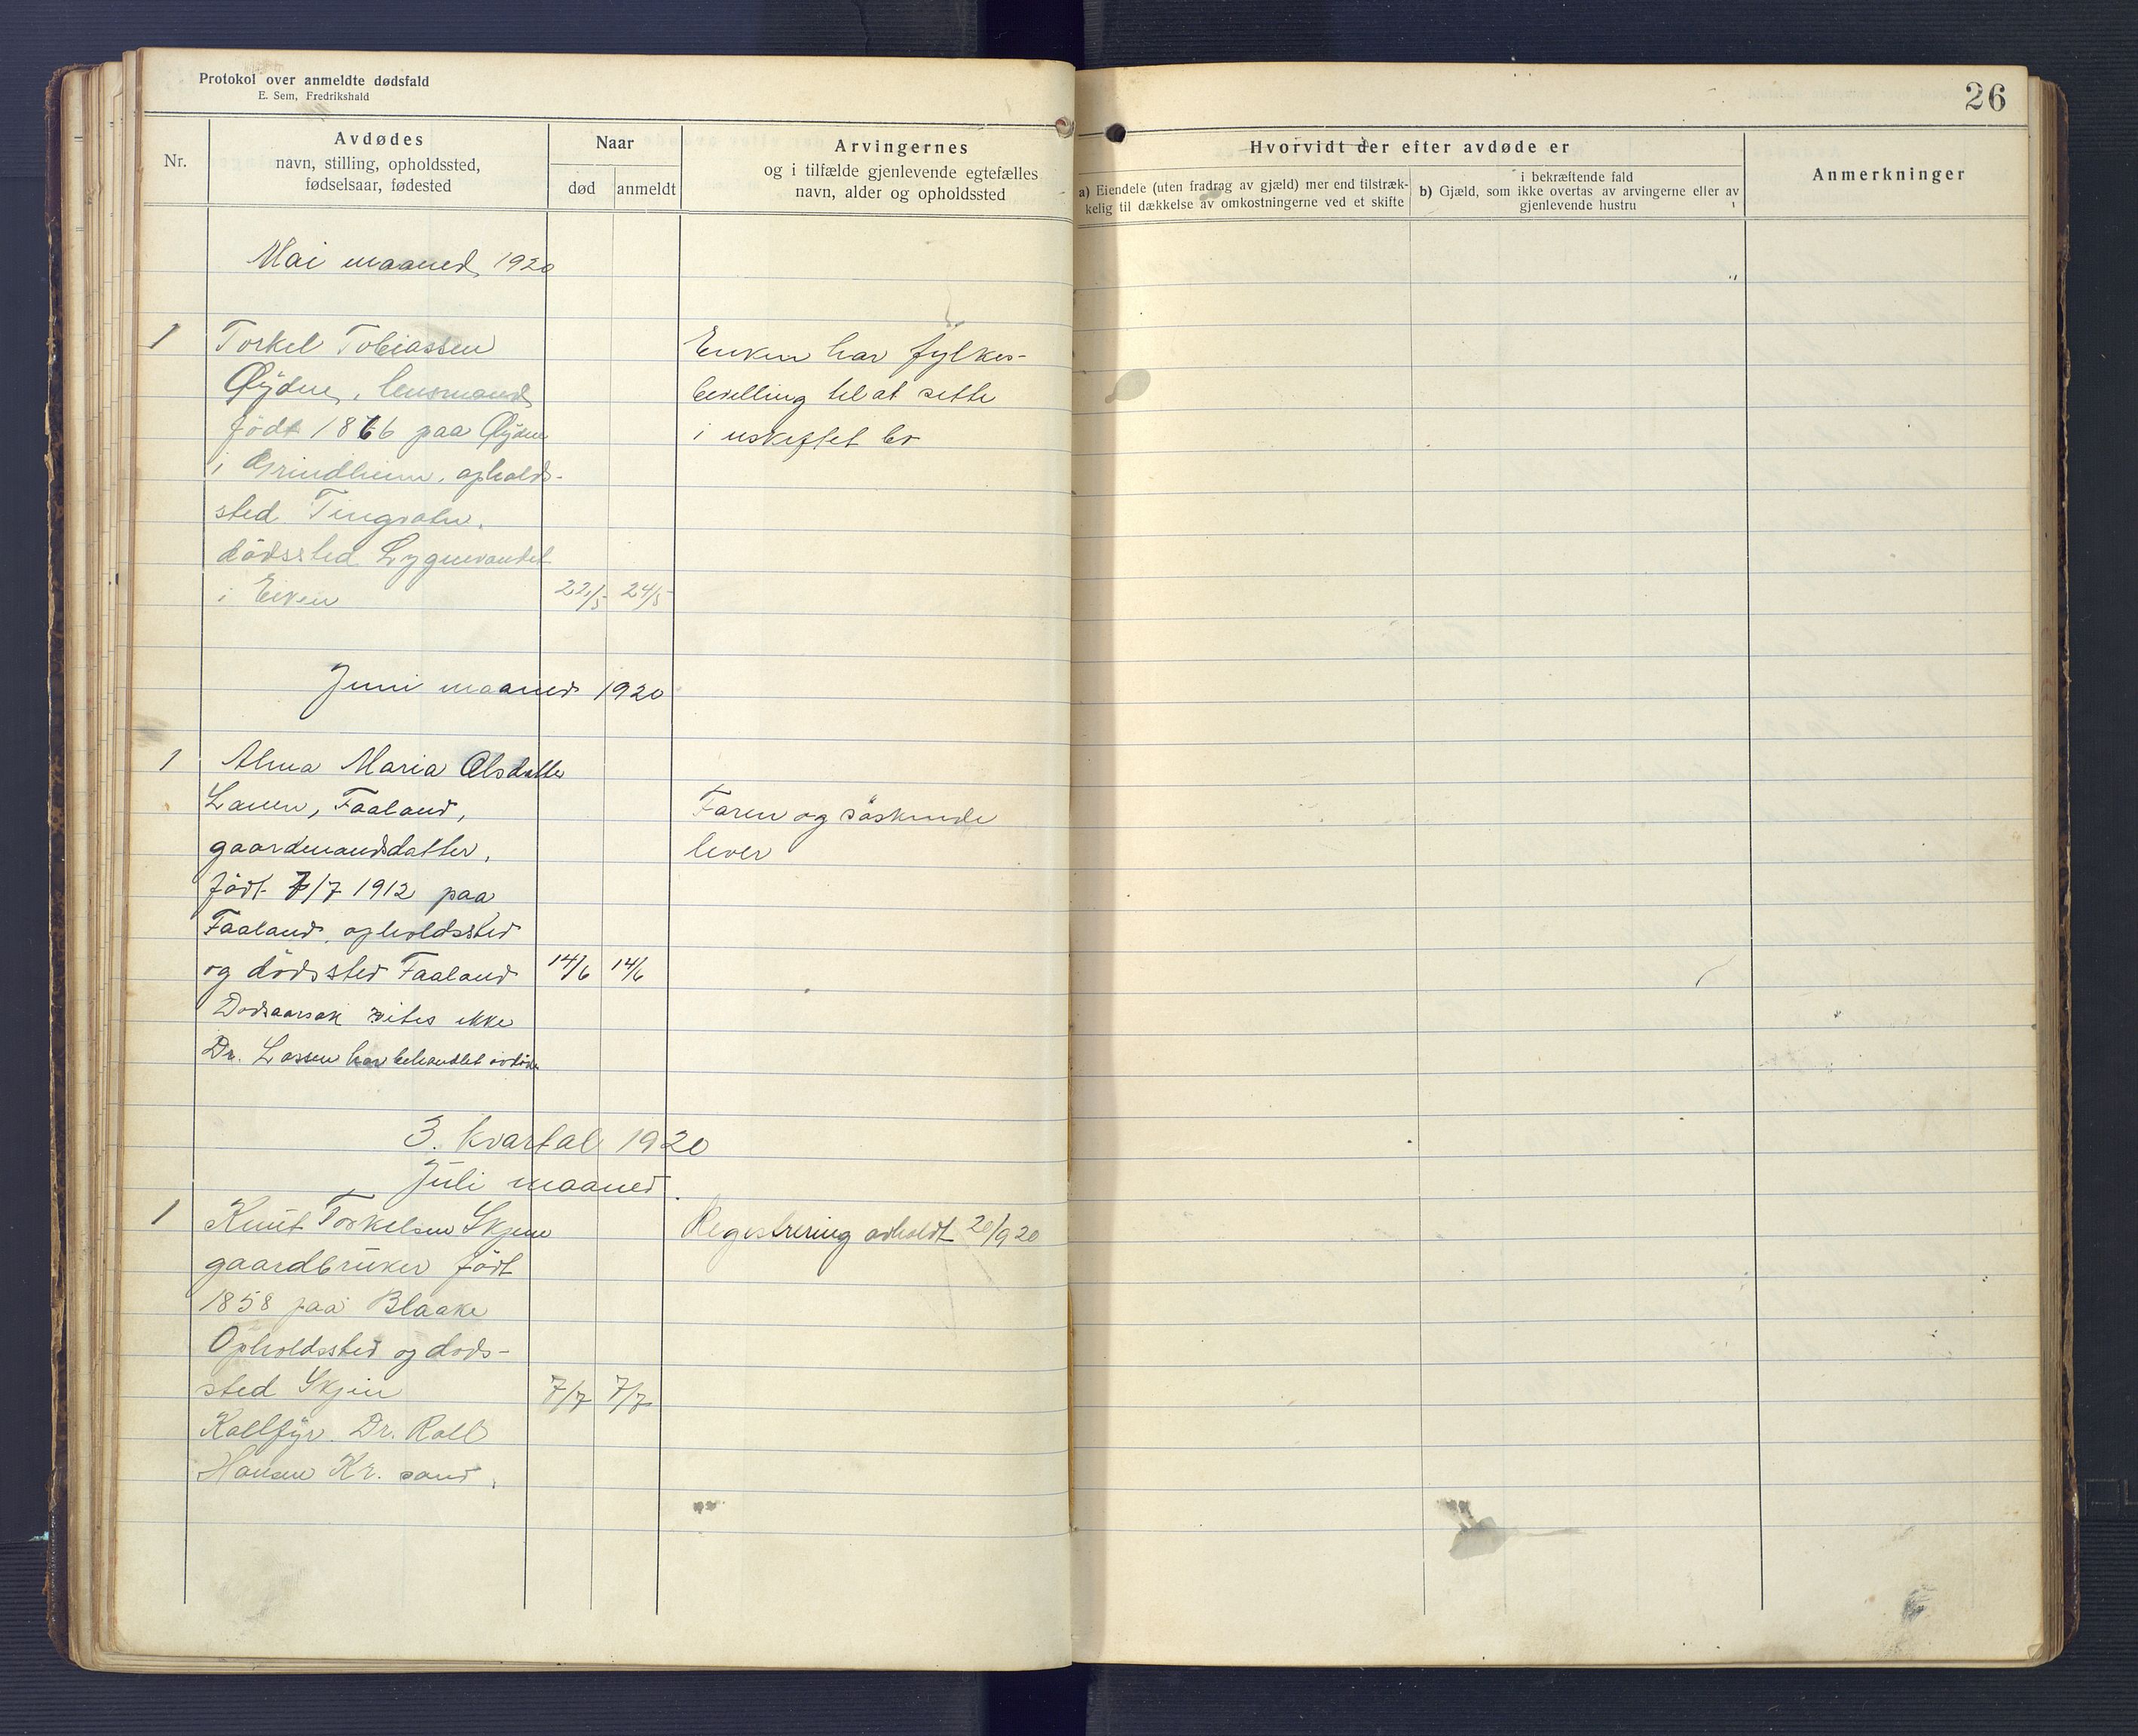 Protokol over anmeldte dødsfald
E. Sem, Fredrikshald
26
Nr.
Avdødes
navn, stilling, opholdssted,
fødselsaar, fødested
Naar
død
anmeldt
Arvingernes
og i tilfælde gjenlevende egtefælles
navn, alder og opholdssted
Hvorvidt der efter avdøde er
a) Eiendele (uten fradrag av gjæld) mer end tilstræk-
kelig til dækkelse av omkostningerne ved et skifte
i bekræftende fald
b) Gjæld, som ikke overtas av arvingerne eller av
gjenlevende hustru
Anmerkninger
Mai maaned 1920
1 Torkel Tobiassen
Øydne, lensmand,
født 1866 paa Øydne
i Grindheim, opholds-
sted Tingvatn,
dödssted Lygnevandet
i Eiken 22/5 24/5
Enken har fylkes-
bevilling til at sitte
i uskiftet bo
Juni maaned 1920
1 Alma Maria Olsdatter
Lauen, Faaland,
gaardmandsdatter,
född 7/7 1912 paa
Faaland, opholdssted
og dödssted Faaland 14/6 14/6
Dodsaarsak vites ikke
Dr. Lassen har behandlet avdöde
Faren og söskende
lever
3. kvartal 1920
Juli maaned.
1 Knut Torkelsen Skjen
gaardbruker född
1858 paa Blaake
Opholdssted og döds-
sted Skjen 7/7 7/7
Kallfyr Dr. Roll
Hansen Kr. sand.
Registrering avholdt 20/9 20